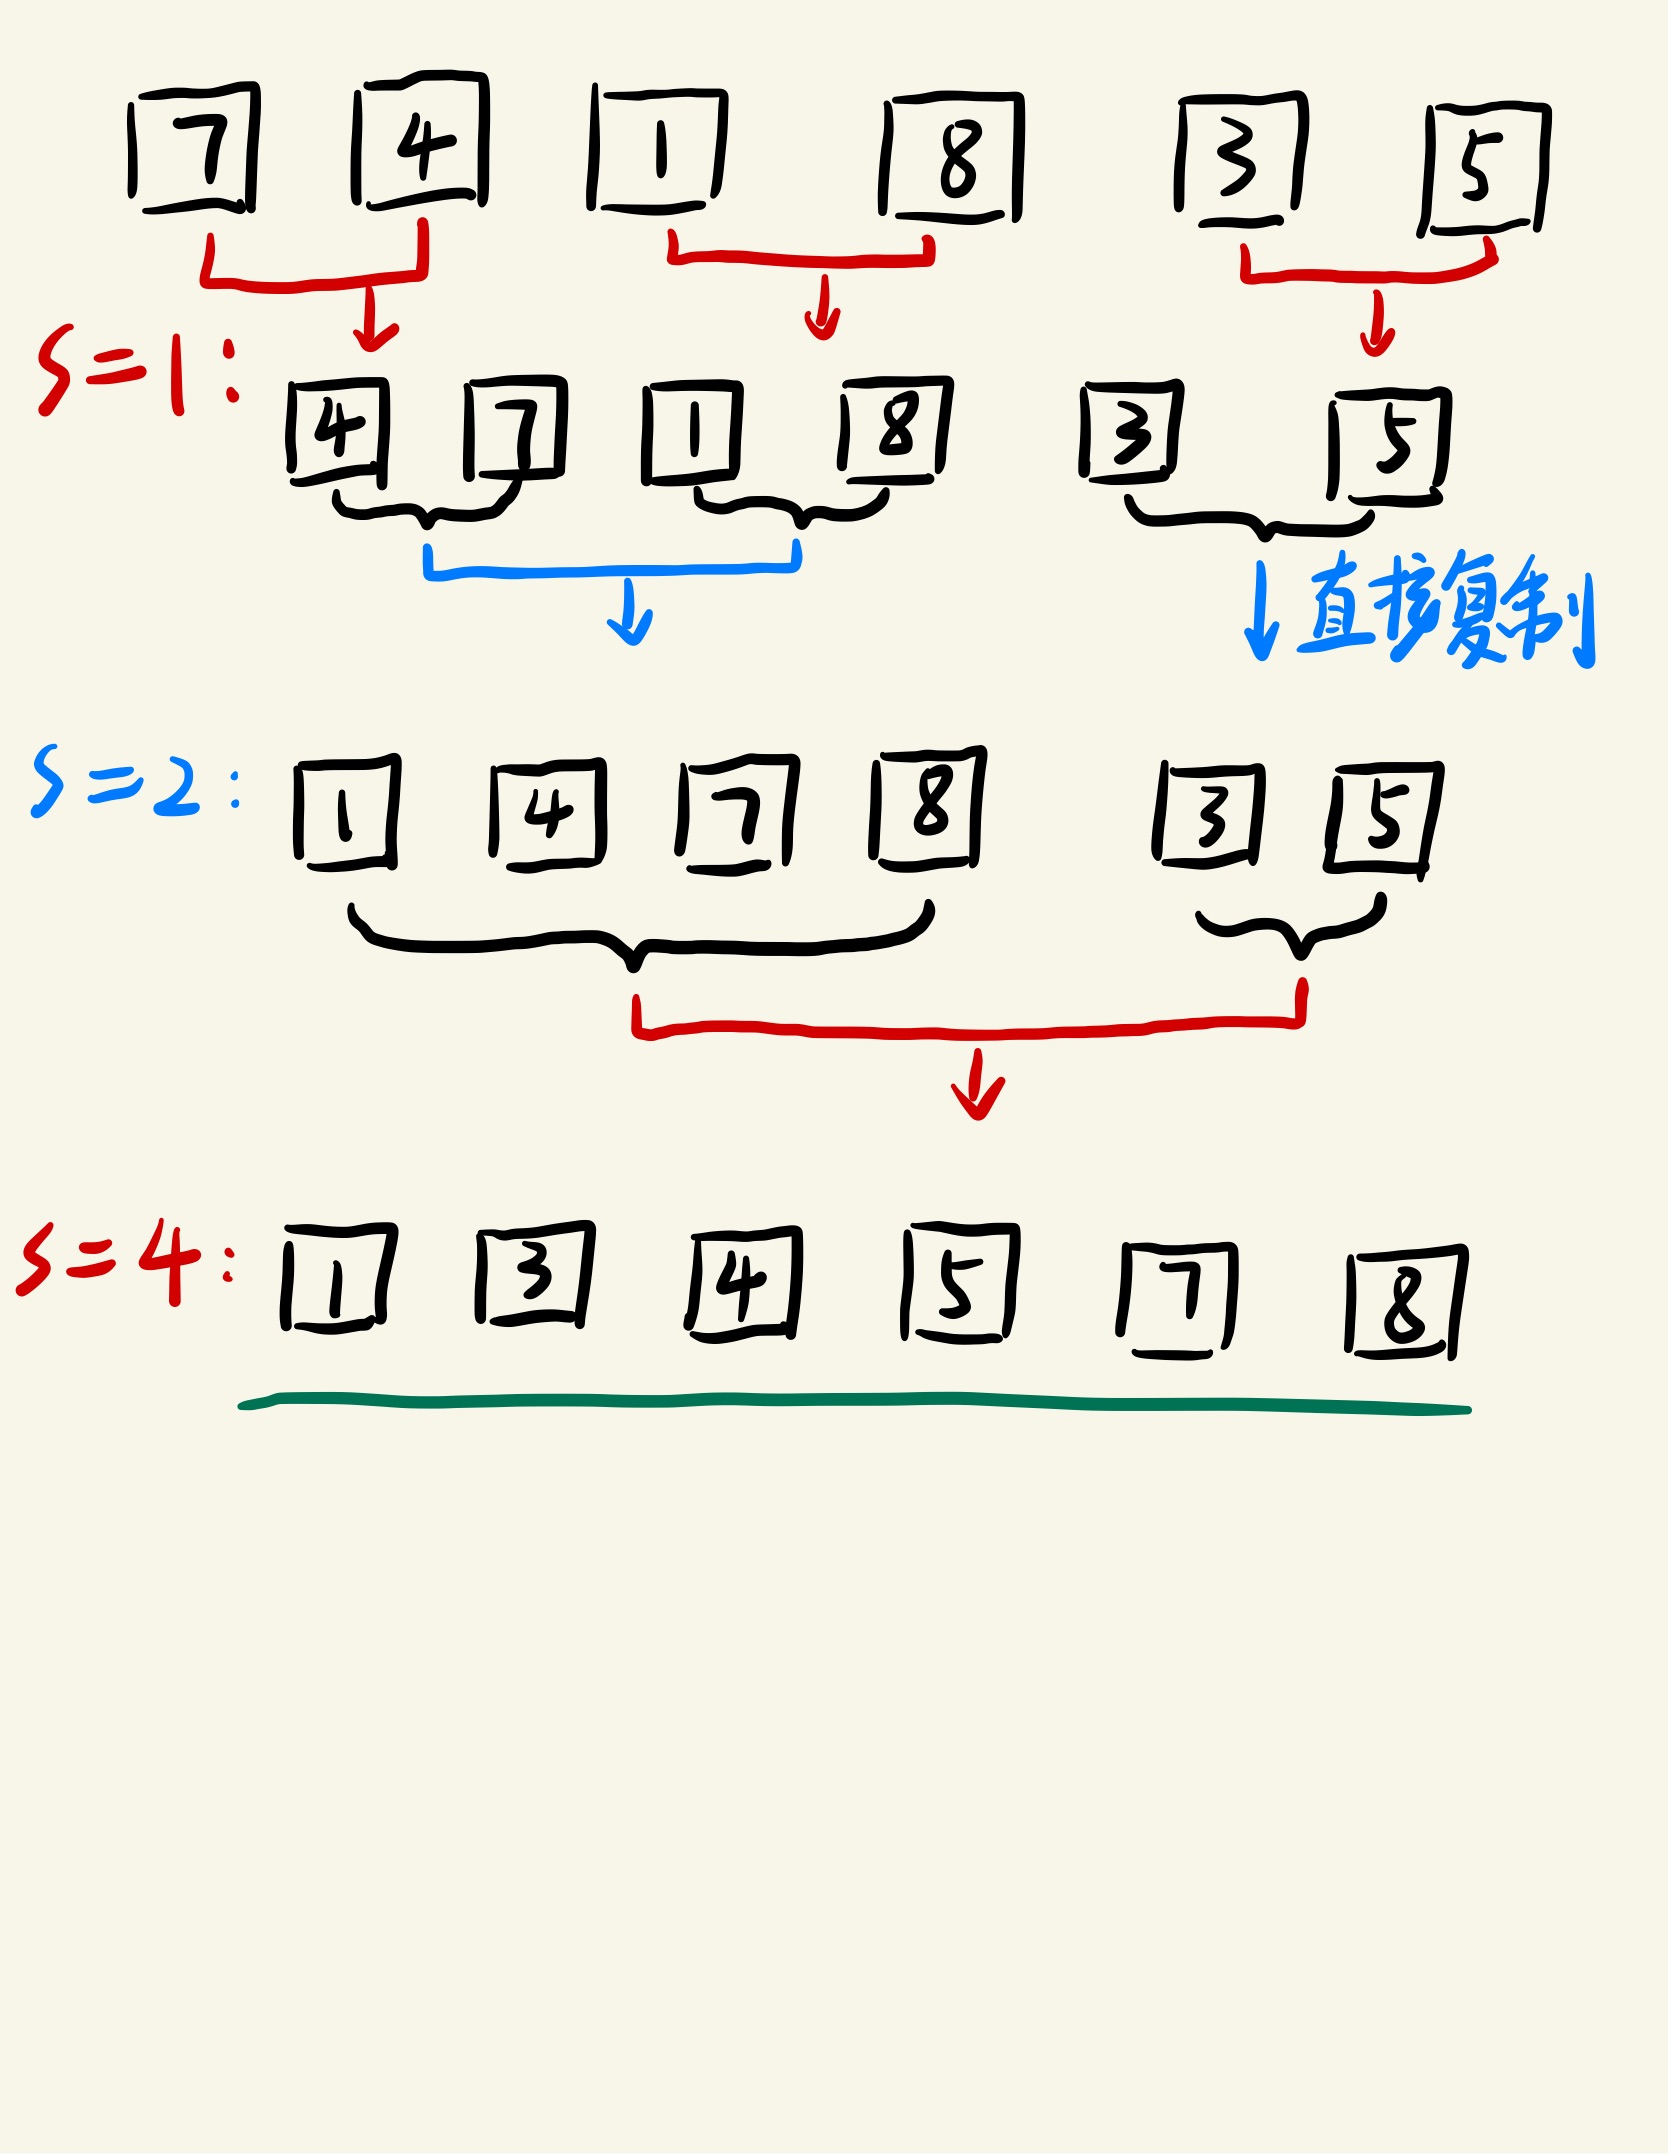 7 4 1 8 3 5
S=1:
4 7 1 8 3 5
直接复制
S=2: 1 4 7 8 3 5
S=4: 1 3 4 5 7 8